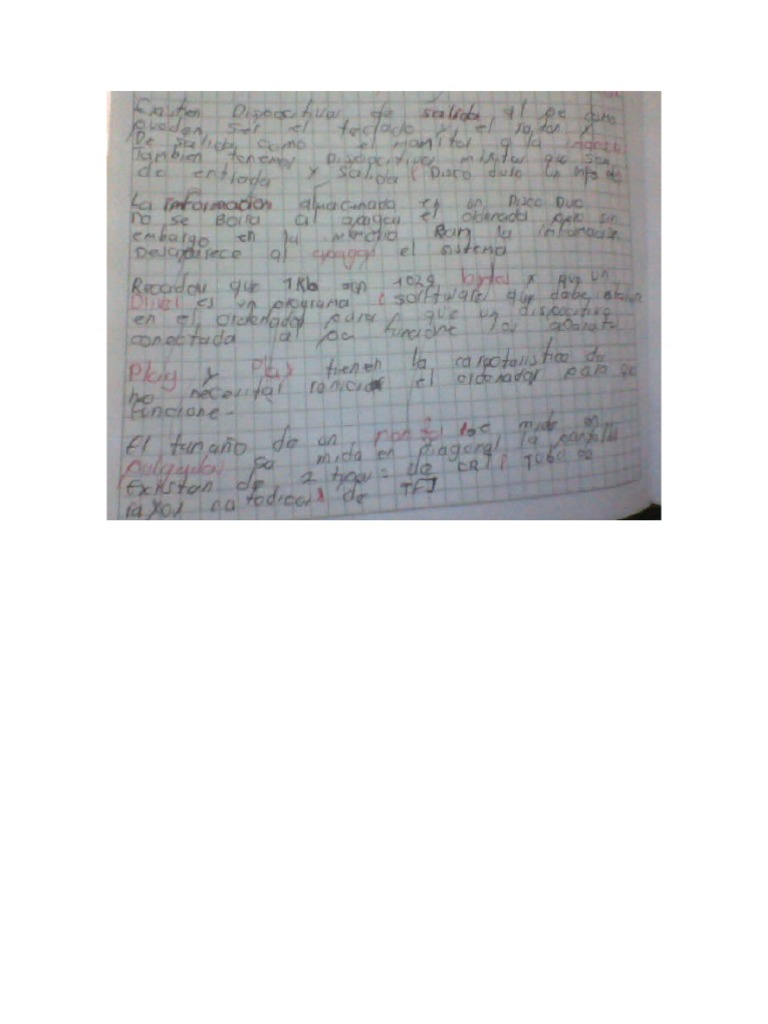 Existen Dispositivos de salida al pc como
pueden ser el teclado y el raton y
De salida como el monitor y la
Tambien tenemos Dispositivos mixtos que son
de entrada y salida ( Disco duro
La informacion almacenada en un Disco Duo
no se Borra al apagar el ordenado pero sin
embargo en la memoria Ram la informacion
Desaparece al apagar el sistema
Recordar que 1Kb son 1024 bytes y que un
es un programa ( software que debe
en el ordenador para que un dispositivo
conectada al pc funcione los aparatos
Plag y Play tienen la caracteristica de
no necesitar reiniciar el ordenador para
funcione -
El tamaño de un mide en
pulgadas se mida en Diagonal la pantalla
Existan de 2 tipos = de CRT ( TUBO
rayos catodicos ) de TFJ